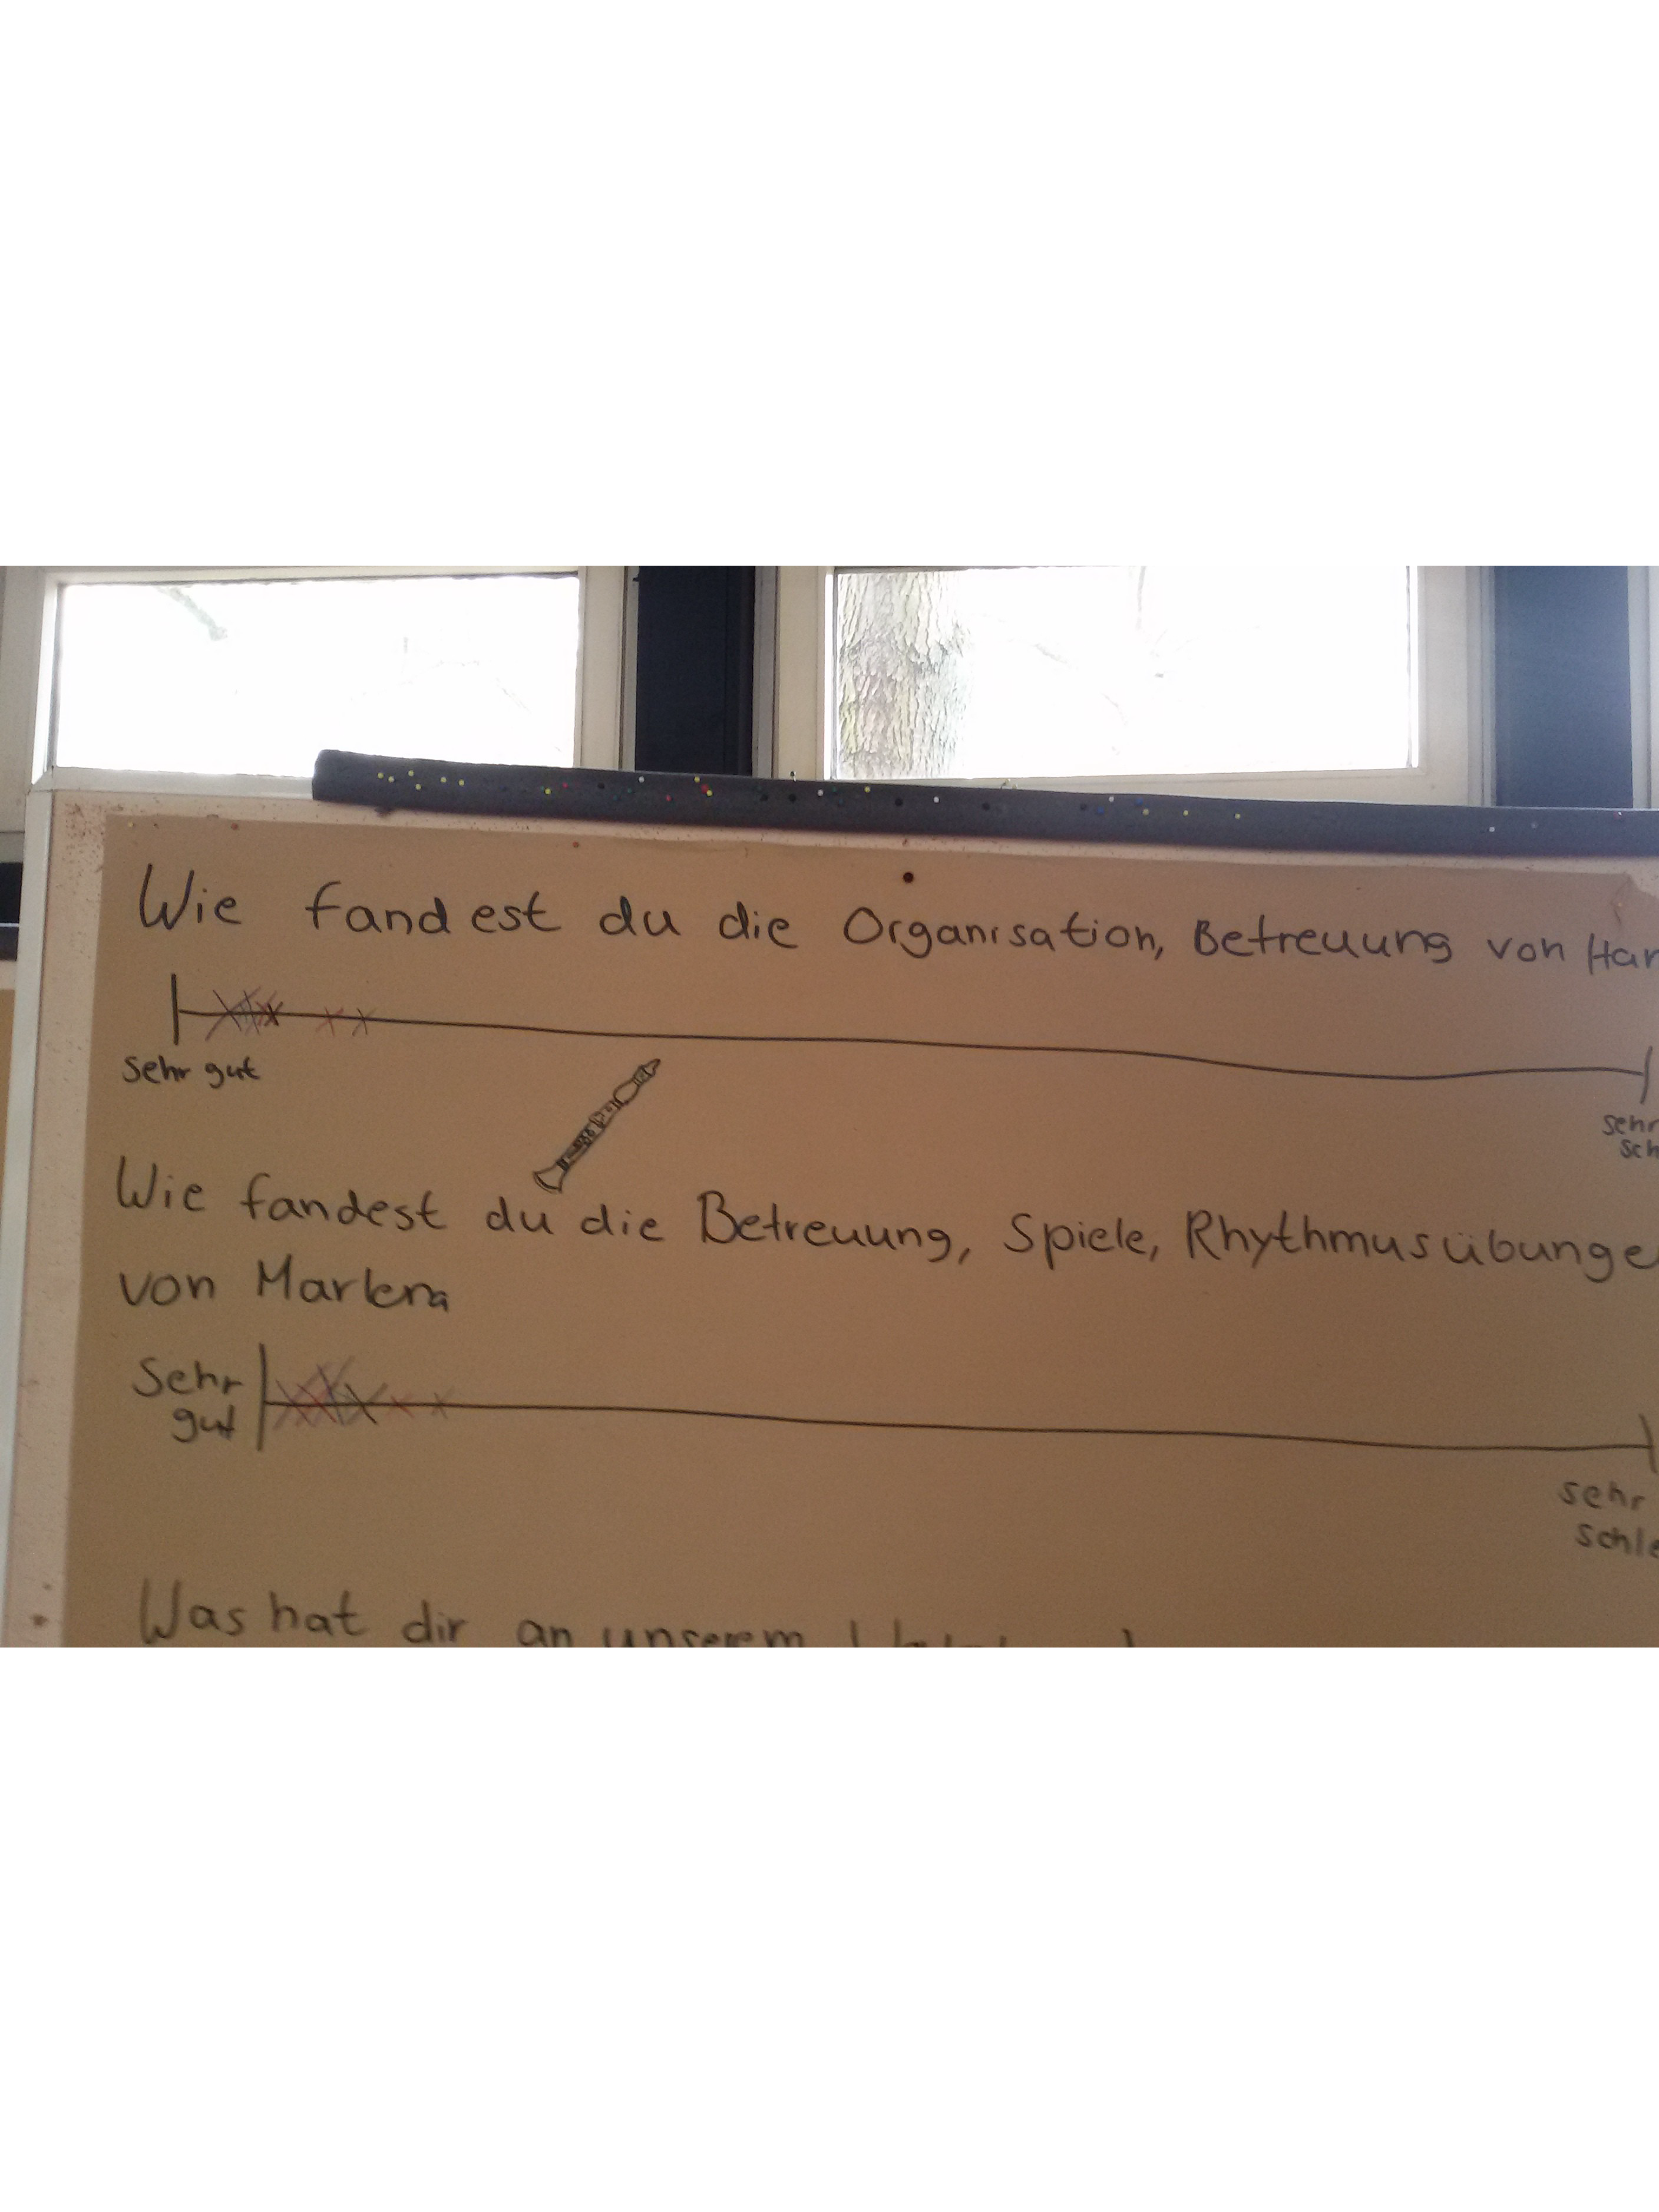 Wie fandest du die Organisation, Betreuung von Har
sehr gut
sehr
sch
Wie fandest du die Betreuung, Spiele, Rhythmusübunge
von
Sehr
gut
sehr
schle
Was hat dir an unserem